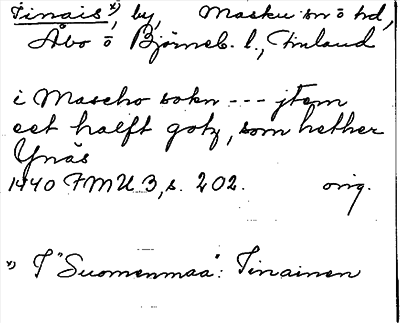 Tinais x), by, Masku sn o hd,
Åbo o Björneb. l., Finland
i Mascho sokn --- jtem
eet halft gotz, som hether
Ynäs
1440 FMU 3, s. 202. orig.
x) I "Suomenmaa": Tinainen